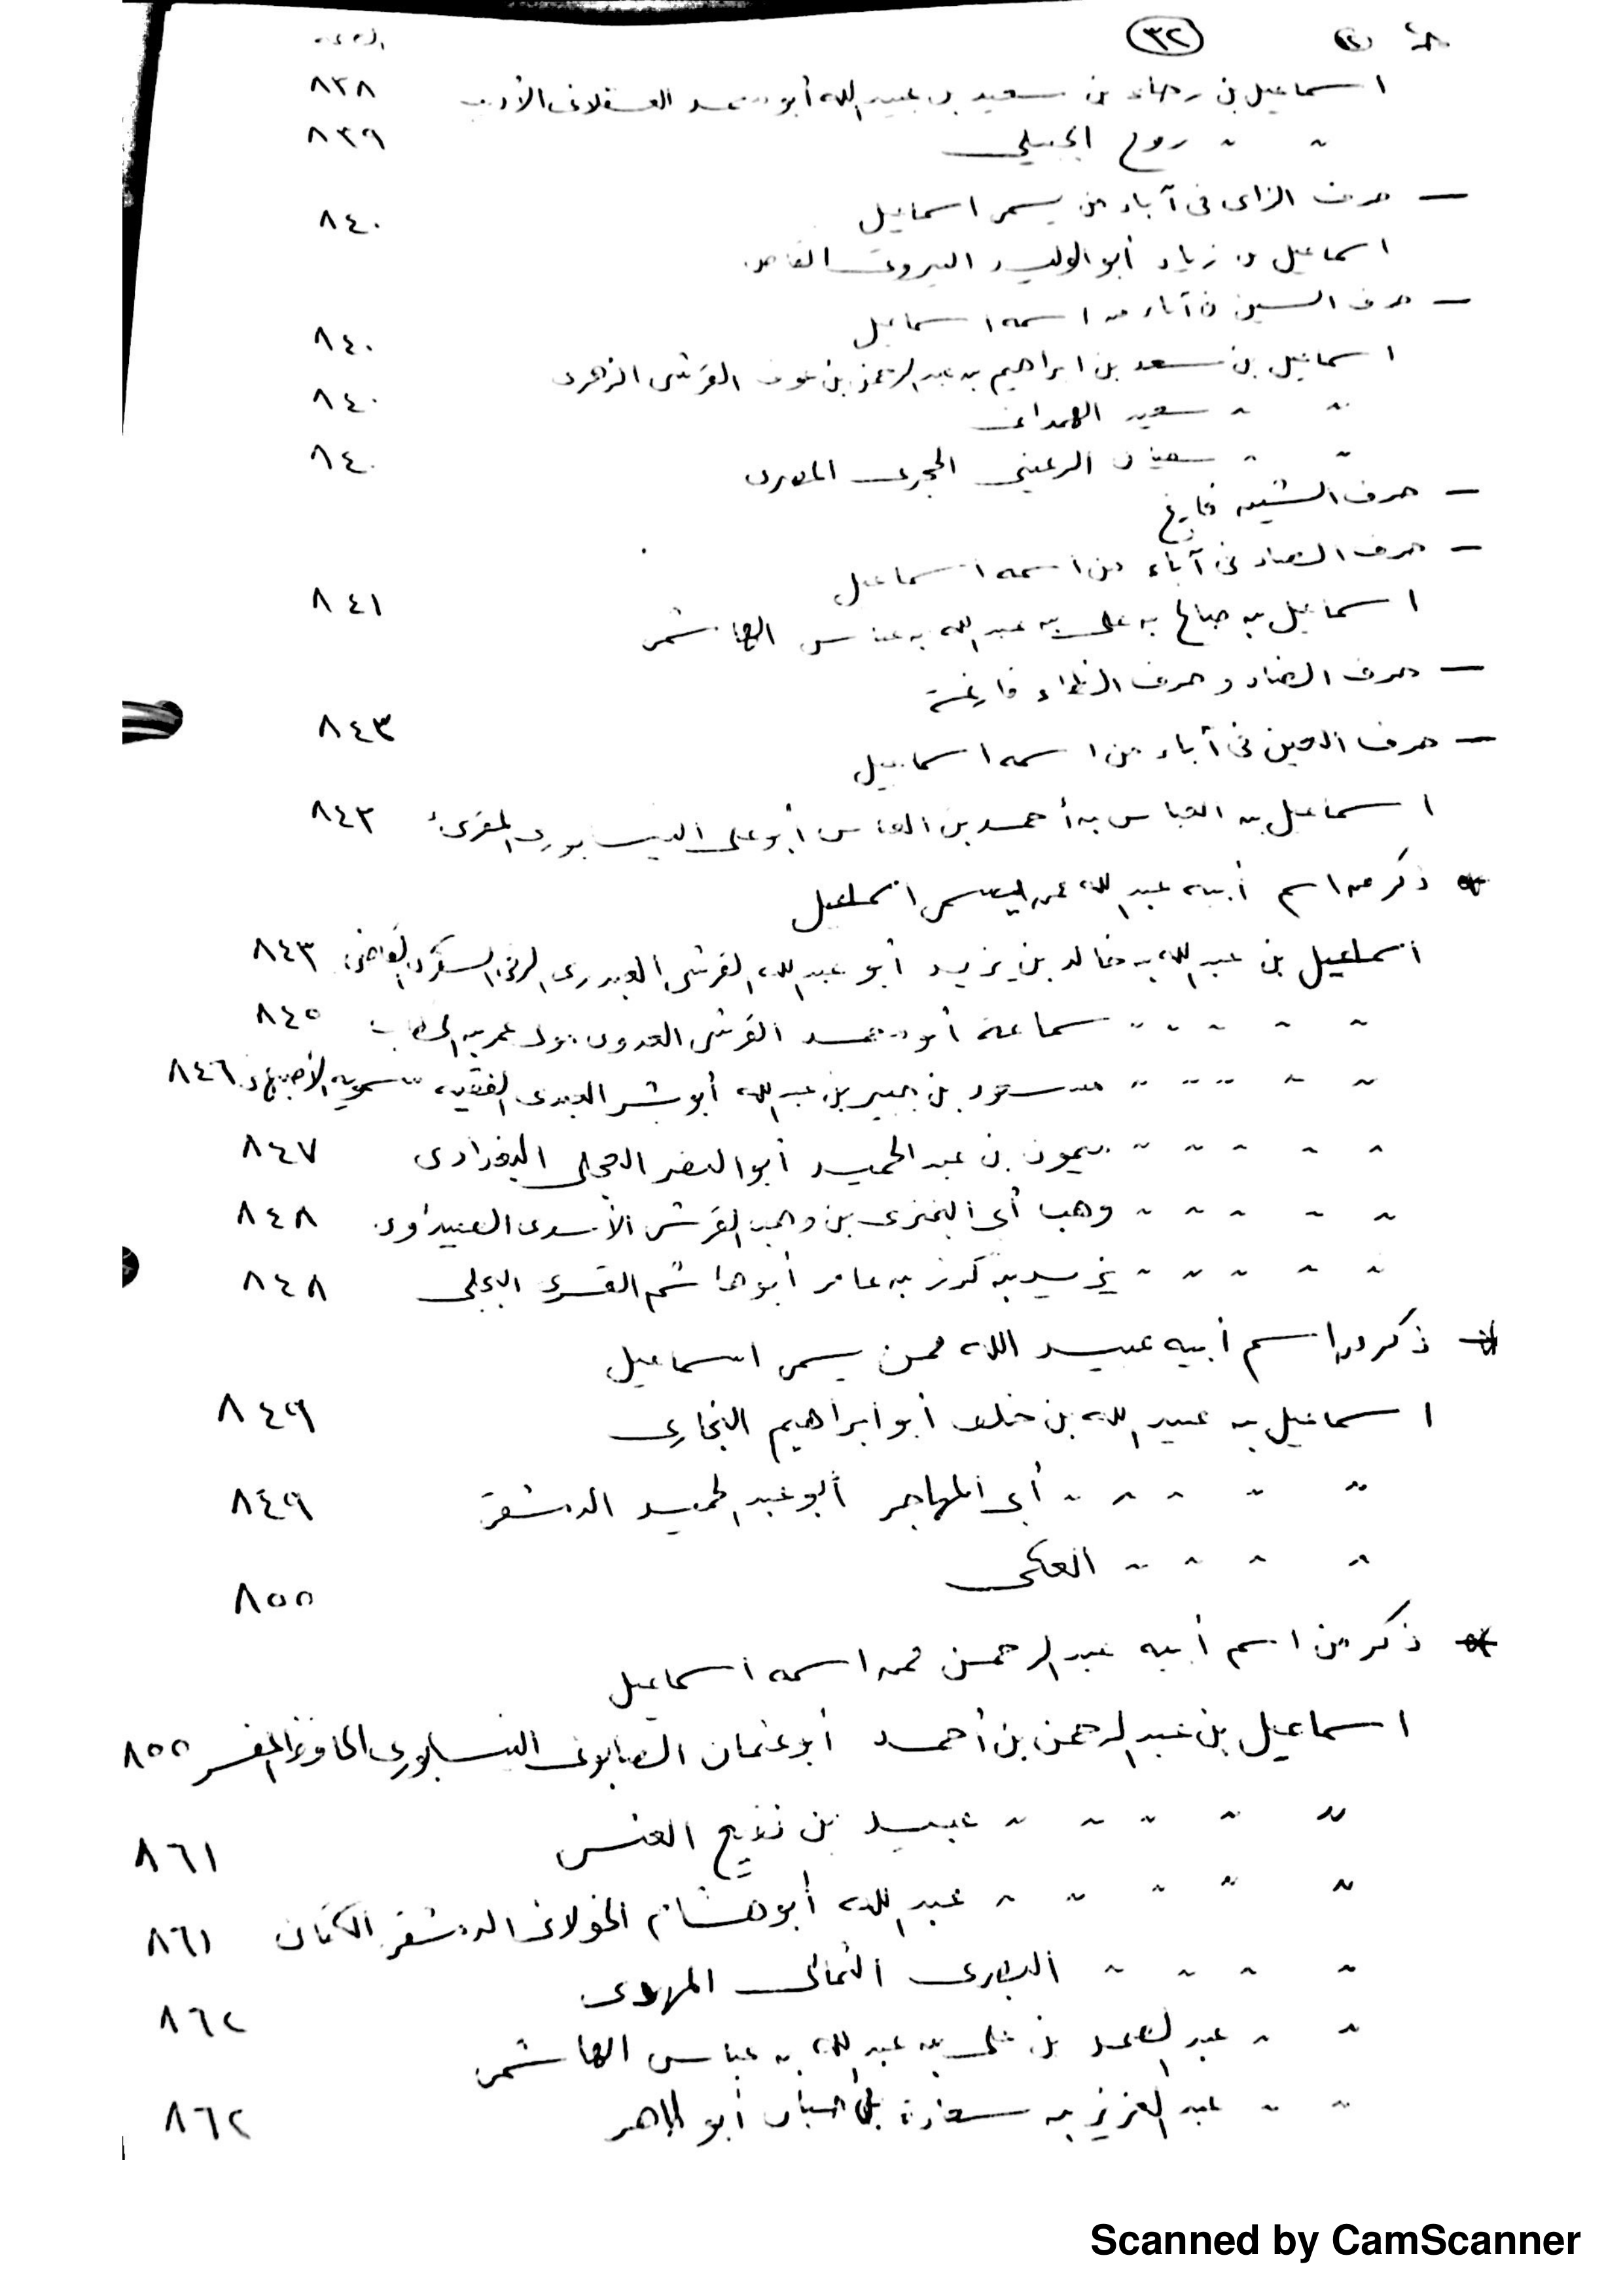 ٣٢
اسماعيل بن رجاء بن سعيد بن عبيد الله أبو محمد العسقلاني الأديب ٨٣٨
〃 〃 روح الجبيلي ٨٣٩
— حرف الزاى فى آباء من يسمى اسماعيل ٨٤٠
اسماعيل بن زياد أبو الوليد البيروتى القاص
— حرف السين فى آباء من اسمه اسماعيل
اسماعيل بن سعد بن ابراهيم بن عبد الرحمن بن عوف القرشى الزهرى ٨٤٠
〃 〃 سعيد الهمدانى ٨٤٠
〃 〃 سفيان الرعينى الحجرى المصرى ٨٤٠
— حرف الشين فارغ
— حرف الصاد فى آباء من اسمه اسماعيل
اسماعيل بن صالح بن على بن عبد الله بن عباس الهاشمى ٨٤١
— حرف الضاد وحرف الظاء فارغة
— حرف العين فى آباء من اسمه اسماعيل ٨٤٣
اسماعيل بن العباس بن أحمد بن العباس أبو على النيسابورى المقرئ ٨٤٣
* ذكر من اسم أبيه عبد الله ممن يسمى اسماعيل
اسماعيل بن عبد الله بن خالد بن يزيد أبو عبد الله القرشى العبدرى الرقى السكرى القاضى ٨٤٣
〃 〃 〃 〃 سماعة أبو محمد القرشى العدوى مولى عمر بن الخطاب ٨٤٥
〃 〃 〃 〃 مسعود بن جبير بن عبد الله أبو بشر العبدى الفقيه سمويه الأصبهانى ٨٤٦
〃 〃 〃 〃 〃 ميمون بن عبد الحميد أبو النضر العجلى البغدادى ٨٤٧
〃 〃 〃 〃 〃 وهب أبى البخترى بن وهب القرشى الأسدى ٨٤٨
〃 〃 〃 〃 〃 يزيد بن كرز بن عامر أبو هاشم القسرى البجلى ٨٤٨
* ذكر من اسم أبيه عبيد الله ممن يسمى اسماعيل
اسماعيل بن عبيد الله بن خلف أبو ابراهيم البخارى ٨٤٩
〃 〃 〃 〃 〃 أبى المهاجر أبو عبد الحميد الدمشقى ٨٤٩
〃 〃 〃 〃 العكى ٨٥٥
* ذكر من اسم أبيه عبد الرحمن ممن اسمه اسماعيل
اسماعيل بن عبد الرحمن بن أحمد أبو عثمان الصابونى النيسابورى الحافظ المفسر ٨٥٥
〃 〃 〃 〃 〃 عبيد بن نفيع العنسى ٨٦١
〃 〃 〃 〃 〃 عبد الله أبو هشام الخولانى الدمشقى الكتانى ٨٦١
〃 〃 〃 〃 البصرى الثمالى المهدى
〃 〃 عبد الصمد بن على بن عبد الله بن عباس الهاشمى ٨٦٢
〃 〃 عبد العزيز بن سعادة بن حبان أبو طاهر ٨٦٢
Scanned by CamScanner